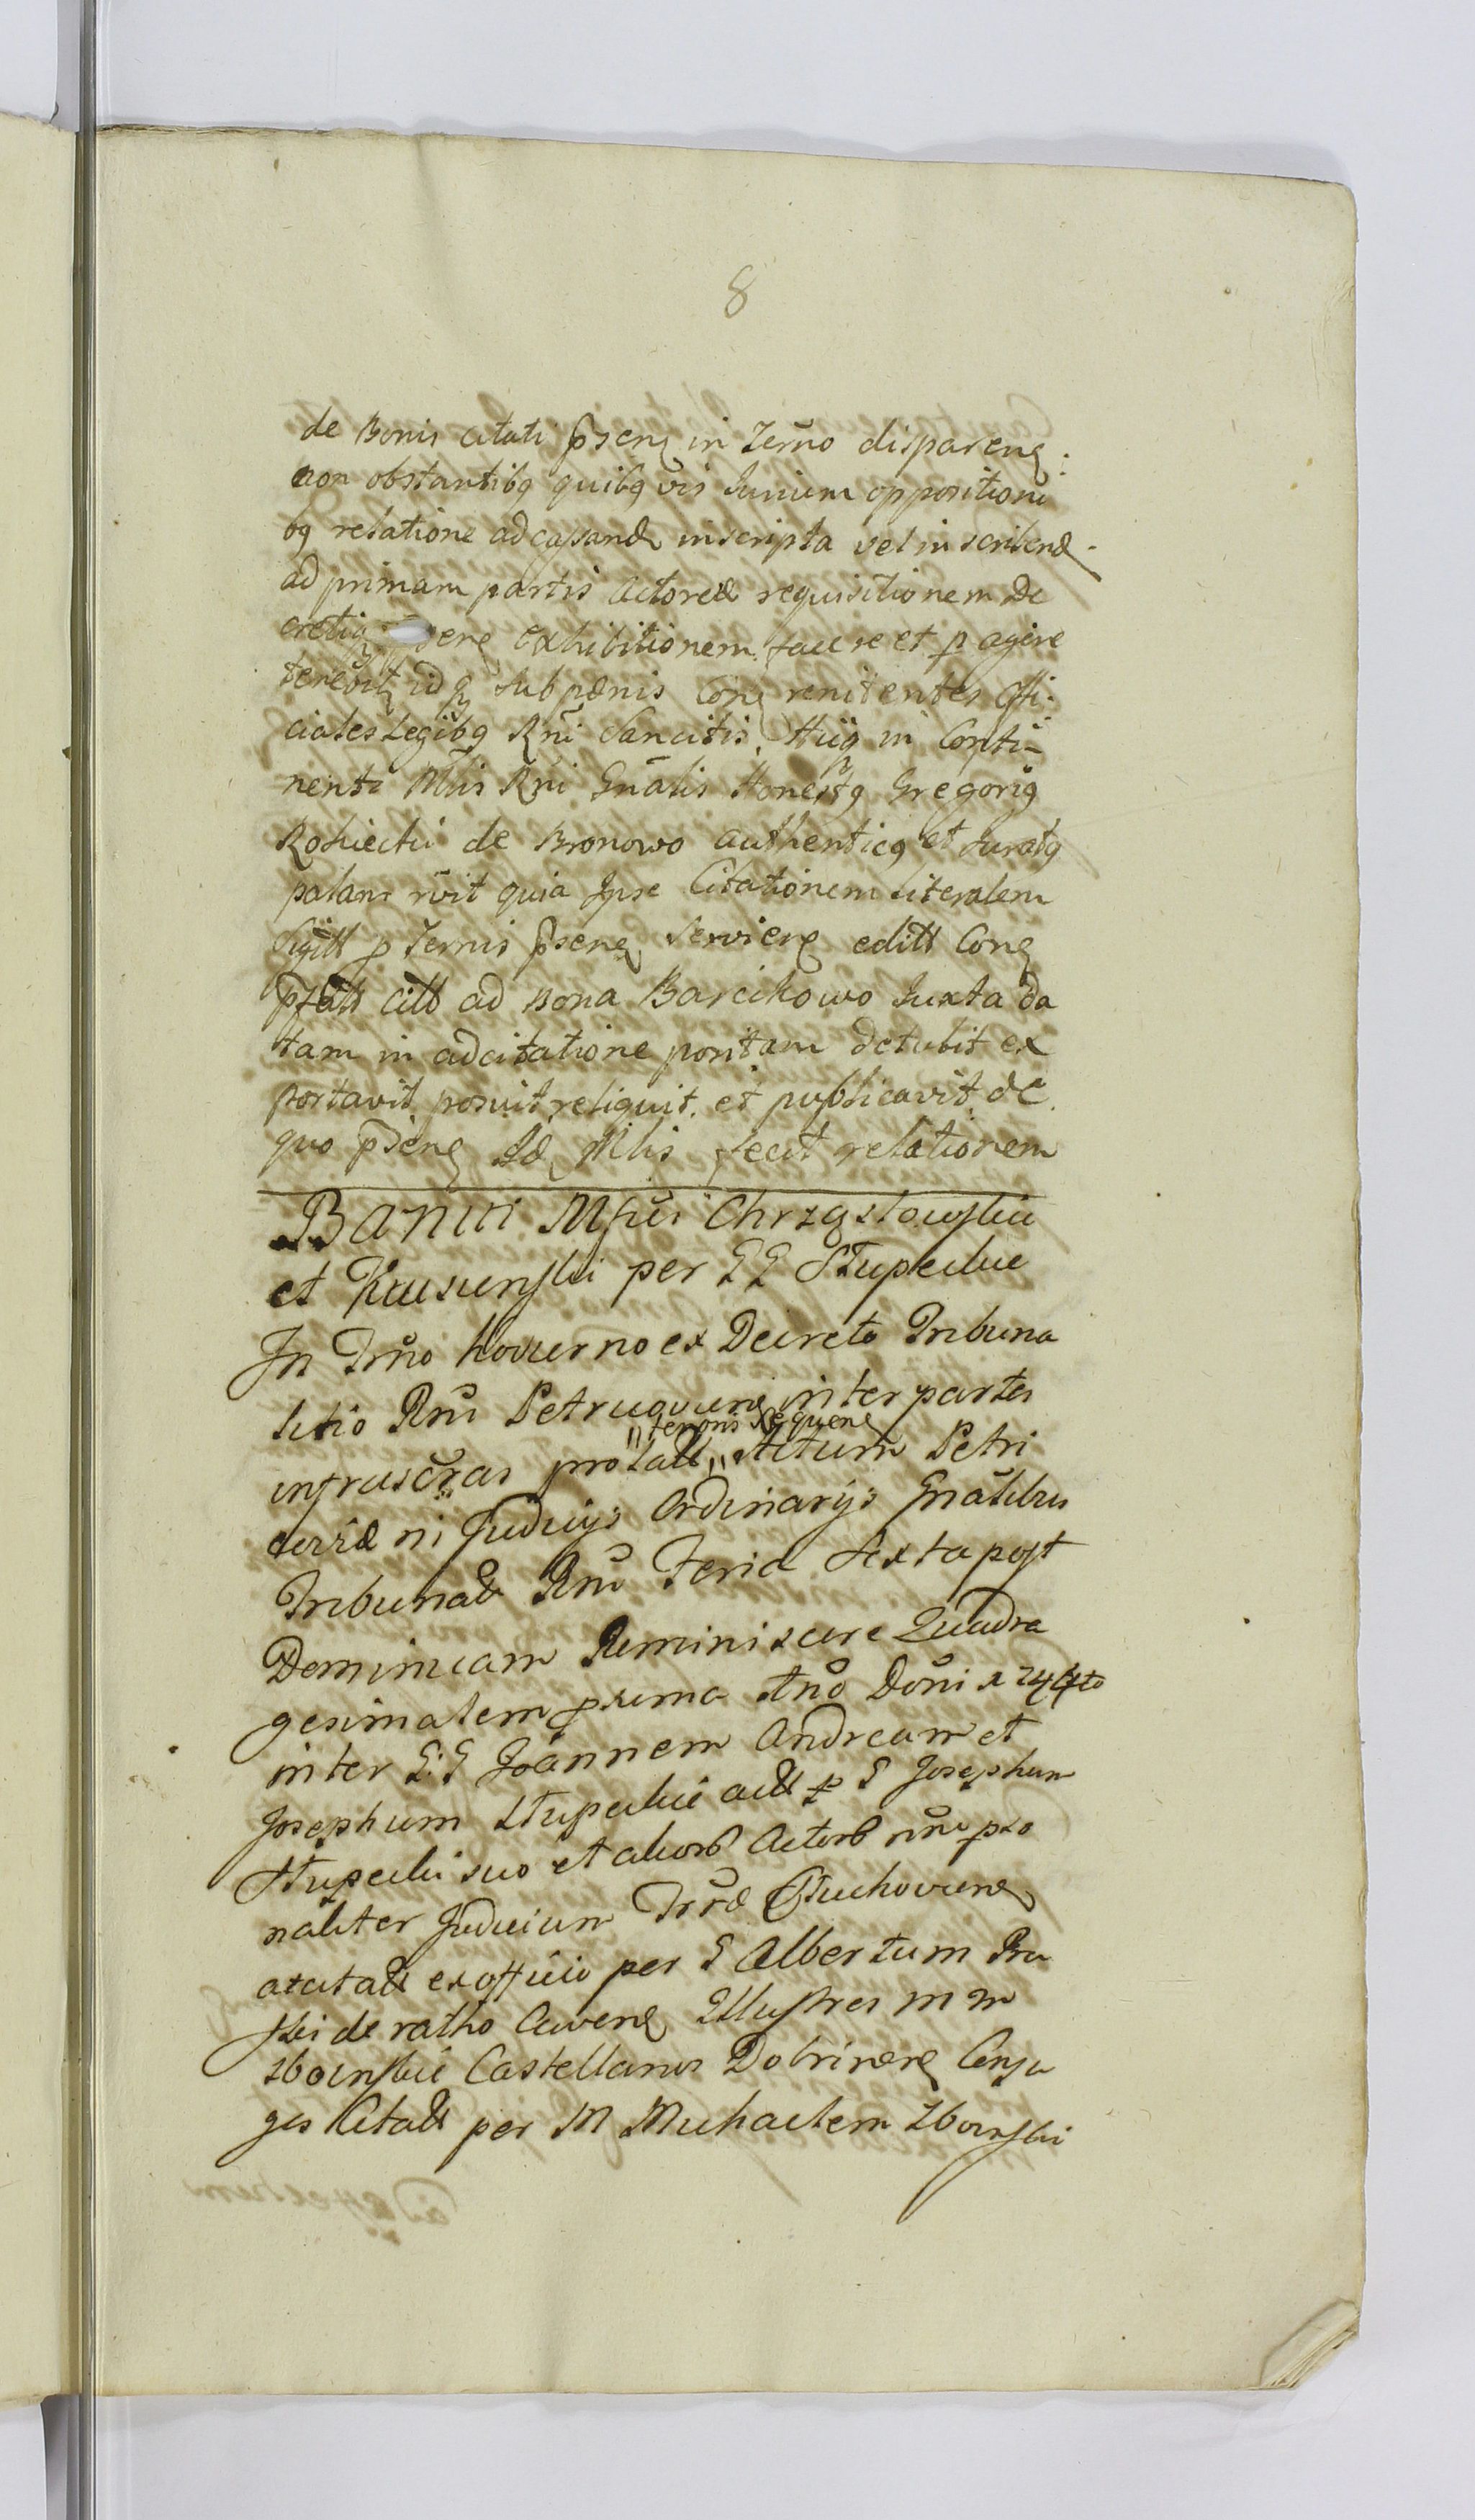 8
de Bonis citati p̄senȝ in Termo disparenȝ:
non obstantibq quibqvis Jurium oppositioni
bq relatione ad cassandȝ inscripta vel inscribendȝ
ad primam partis Actoreæ requisitionem De
cretiqȝ senȝ exhibitionem facere et p agere
tenebitȝ idqȝ sub pænis Conȝ renitentes Offi:
ciales Legibq Rñi Sancitis. Huiq in Conti-
nenti Mlis Rñi Gnālis Honestq Gregoriq
de Bronowo authenticq et Juratq
palam rvit quia Ipse Citationem literalem
Sigill p Ternis p̄senȝ Servienȝ editt Conȝ
pfatt citt ad Bona Barcikowo Juxta da
tam in adcitatione positam detulit ex
portavit posuit reliquit et publicavit de
quo p̄senȝ Idȝ Mlis fecit relationem
Baniti Mfici Chrząstowskia
et per GG Stupeckie
In Trño ex Decreto Tribuna
litio Rñi Petricoviensȝ inter partes
"tenoris sequenȝ
infrascr̄as prolatt "Actum Petri
coviæ in Judicijs Ordinarijs Gnālibus
Tribunalȝ Rñi Feria Sexta post
Dominicam Reminiscere Quadra
gesimalem prima Anō Dōni 1744to
inter G:G Joannem Andream et
Josephum Stupeckie actt p G Josephum
Stupecki suo et aliorȝ Actorȝ nñe pso
naliter Judicium Trr̄æ
atcitatt ex officio per G Albertum Pru
ski de ratho Cavenȝ Illustres M M
Zboinskie Castellanos Dobrinenȝ Conju
ges Citatt per M Michaelem Zboinski